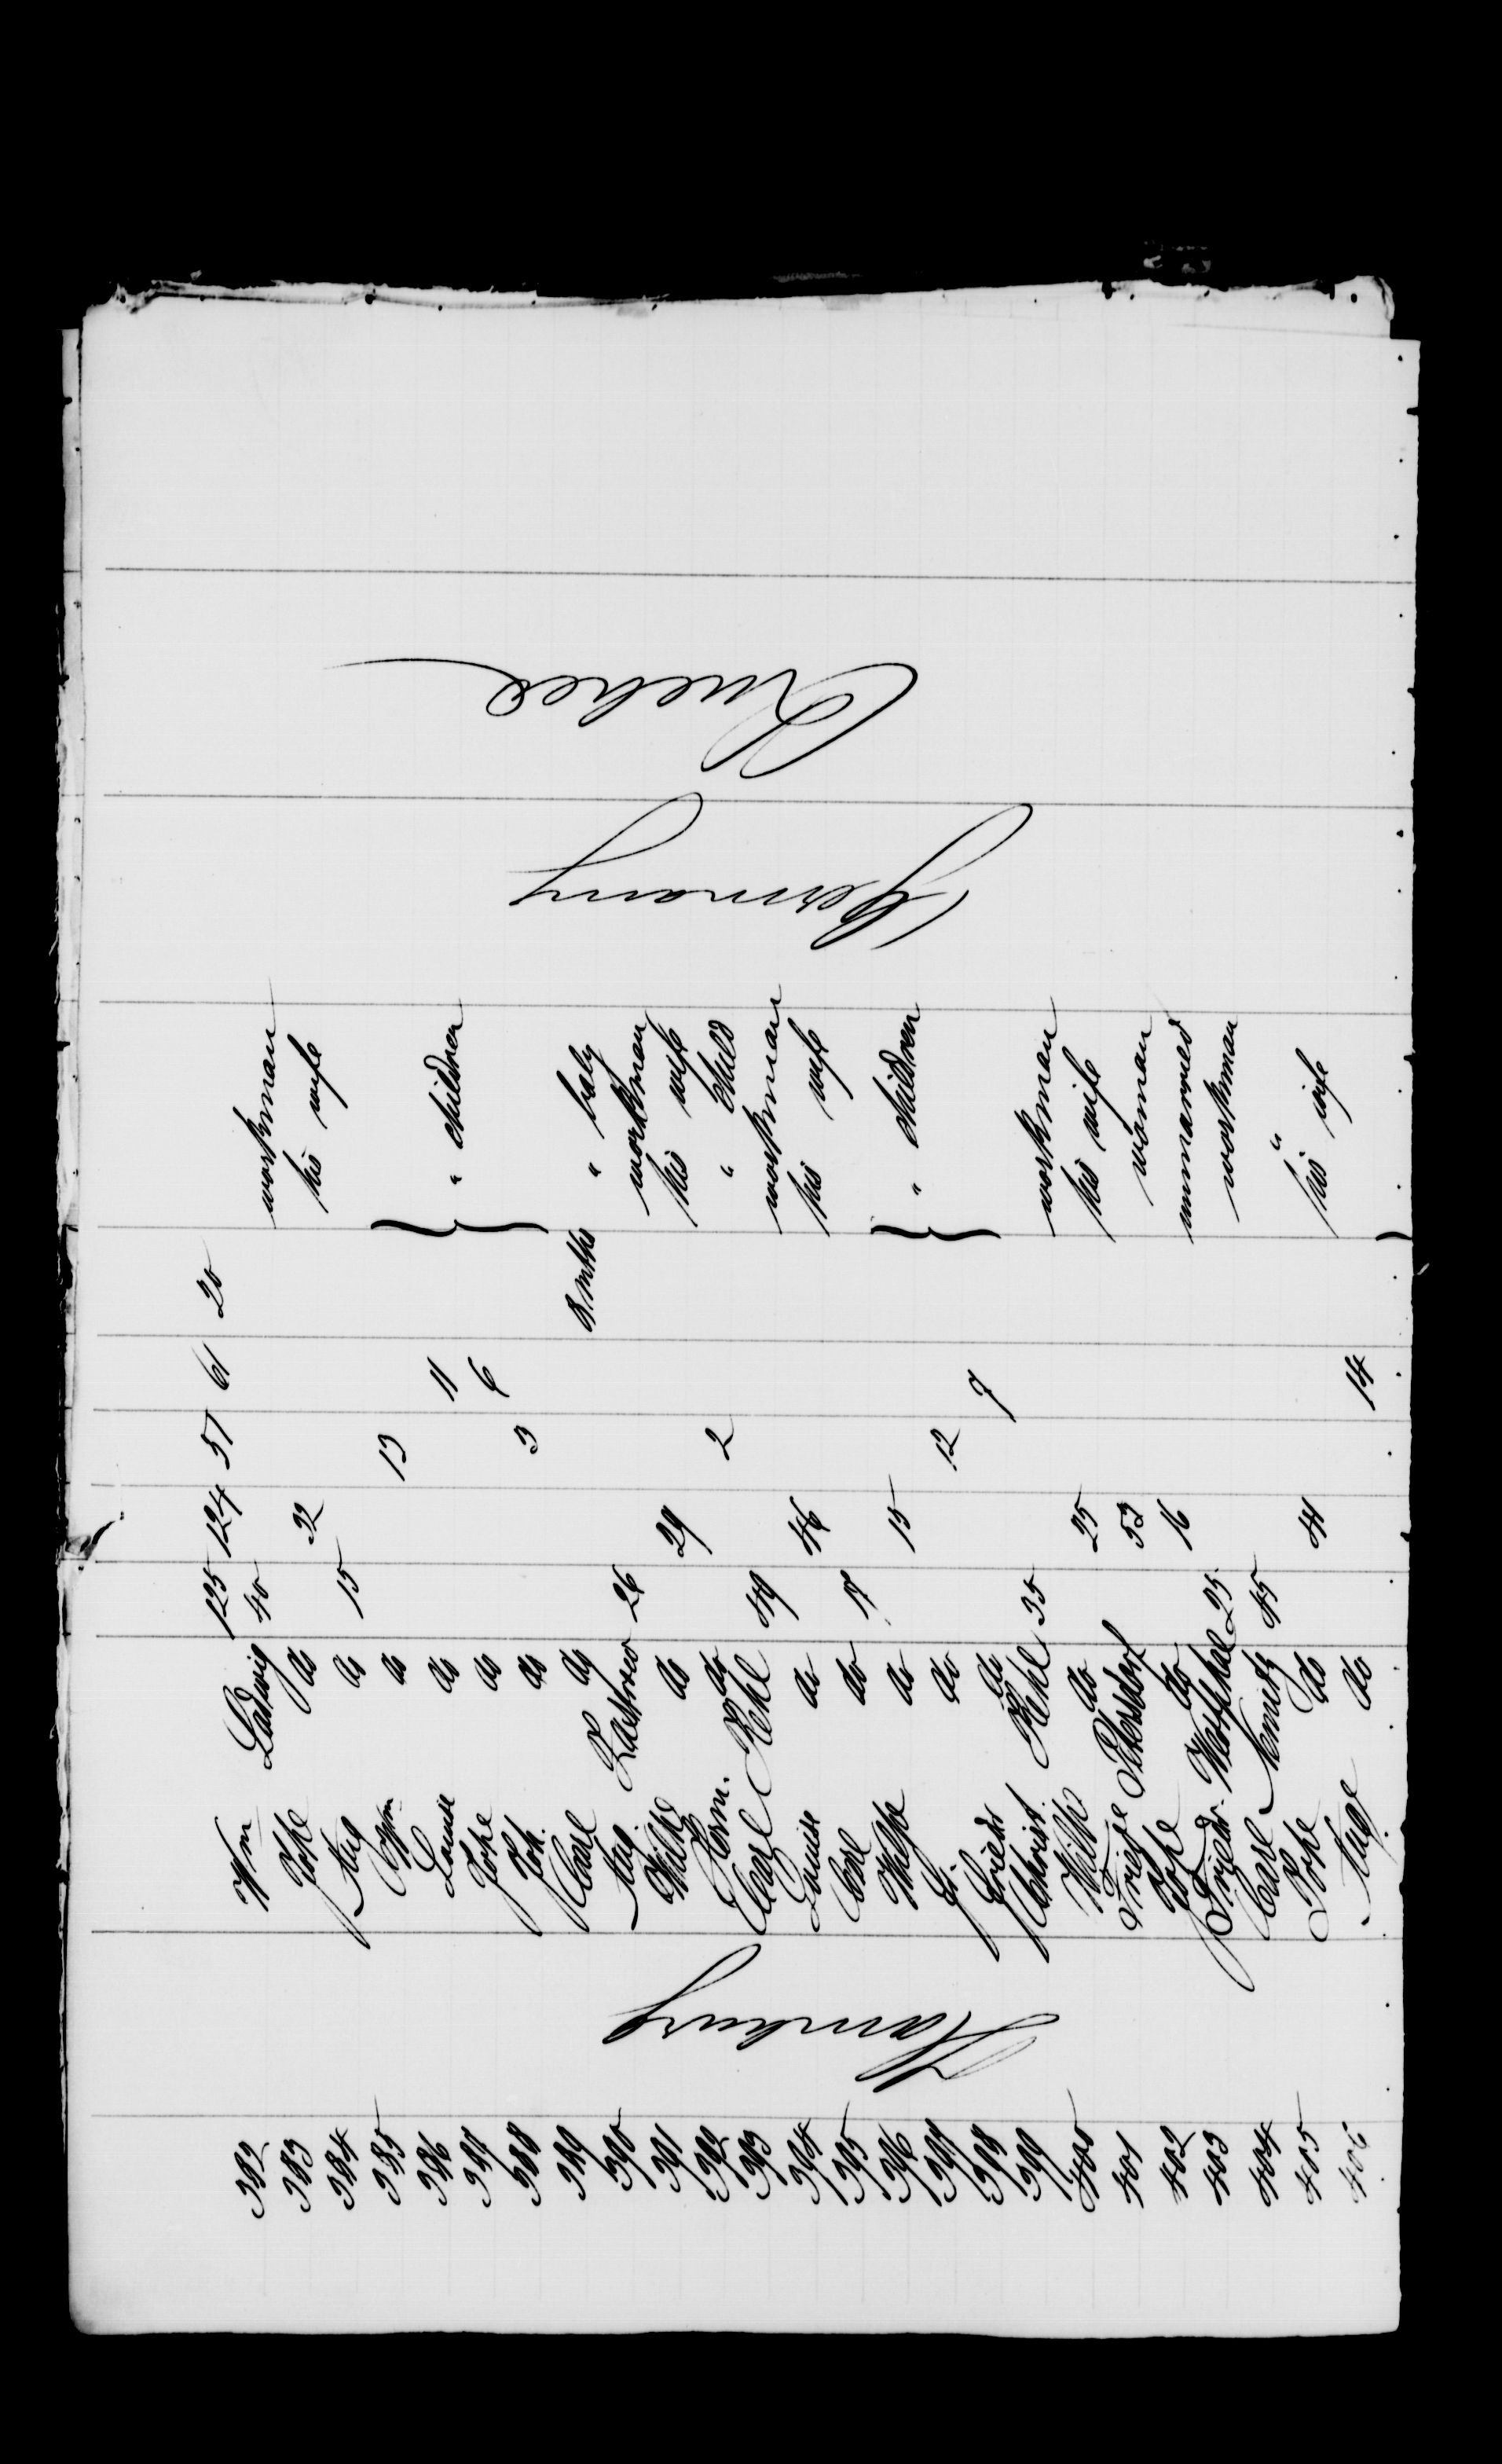 125 124 57 61 20
382 Wm Ladwig 40 workman
383 Sophe do 32 his wife
384 Aug do 15
385 do 13
386 Louise do 11 " children
387 Sophe do 6
388 Joh. do 3
389 Carl do 8 mths " baby
390 Aug. Zastrow 26 workman
391 Wilhe do 29 his wife
392 Herm. do 2 " child
393 Carl Kehl 49 workman
394 Louise do 46 his wife
395 Carl do 17
396 do 15 " children
397 do 12
398 Friedr do 7
399 Christ. Kehl 35 workman
400 Wilhe do 25 his wife
401 Petersdorf 53 woman
402 Sophe do 16 unmarried
403 Friedr. Westphal 25 workman
404 Carl Nemitz 45 "
405 Sophe do 41 his wife
406 Aug. do 14
Hamburg
Germany
Quebec